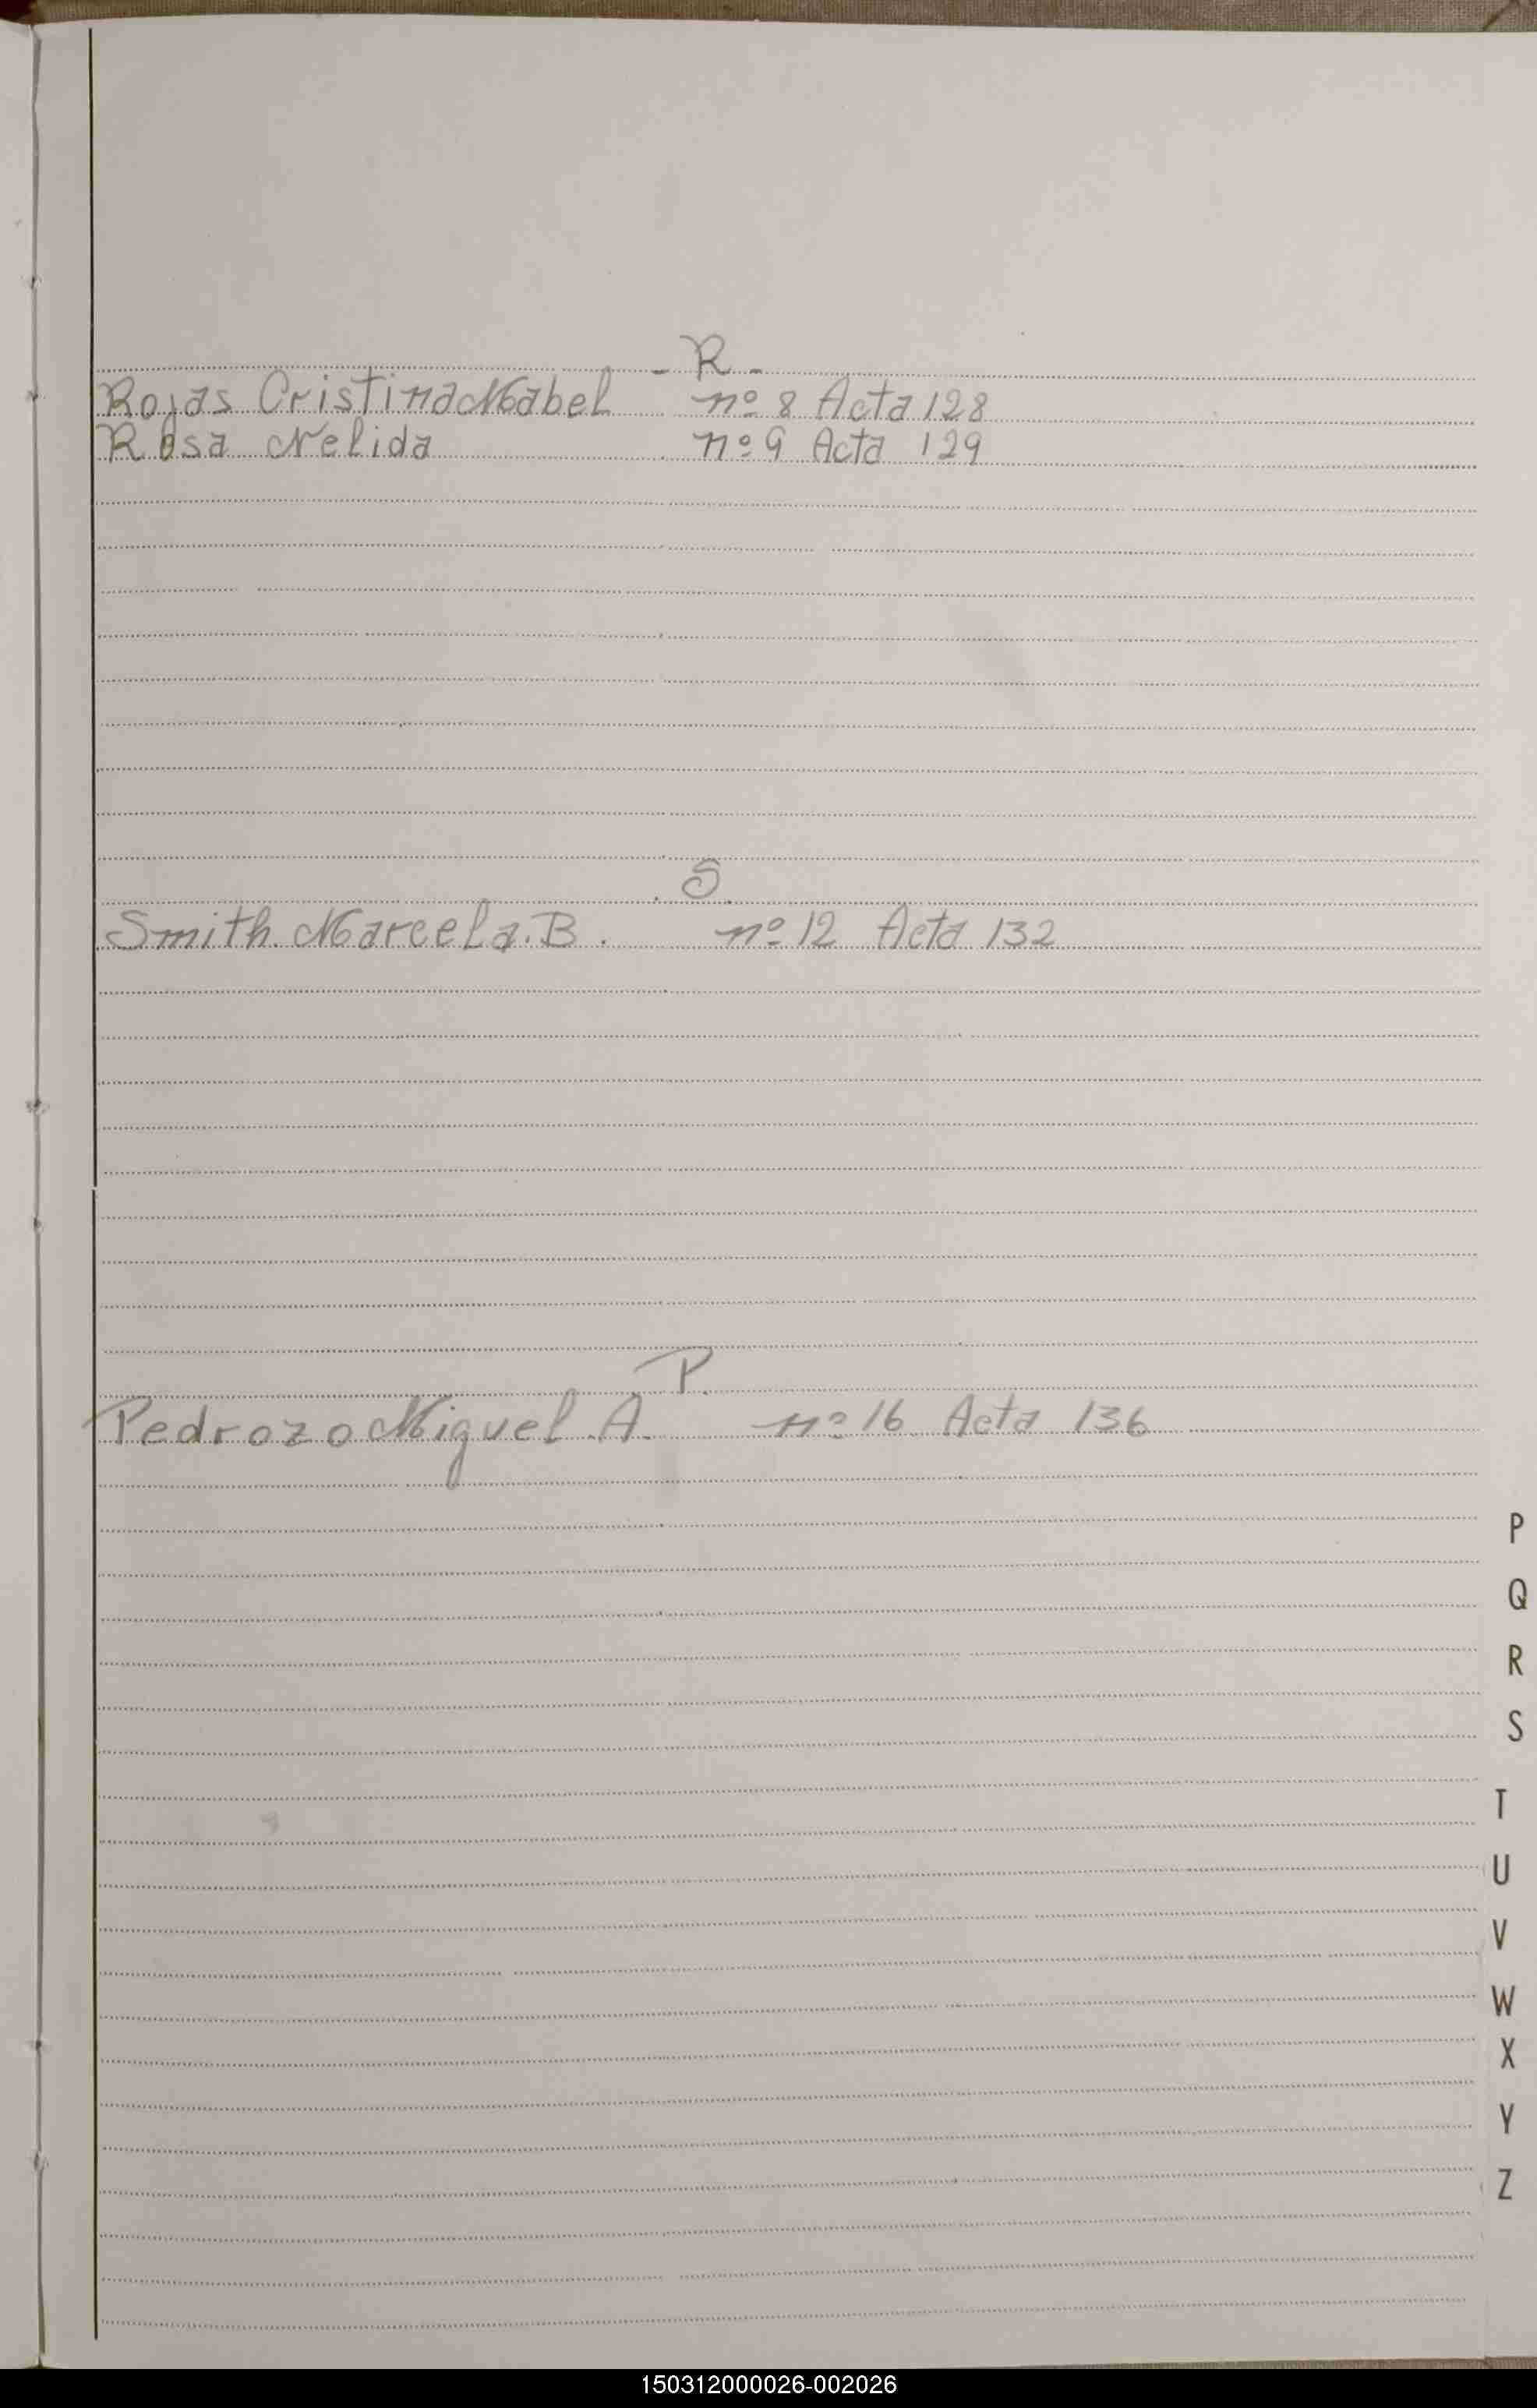 - R -
Rojas Cristina Mabel nº 8 Acta 128
Rosa Nelida nº 9 Acta 129
S
Smith Marcela. B. nº 12 Acta 132
P.
Pedrozo Miguel A. nº 16 Acta 136
P
Q
R
S
T
U
V
W
X
Y
Z
150312000026-002026